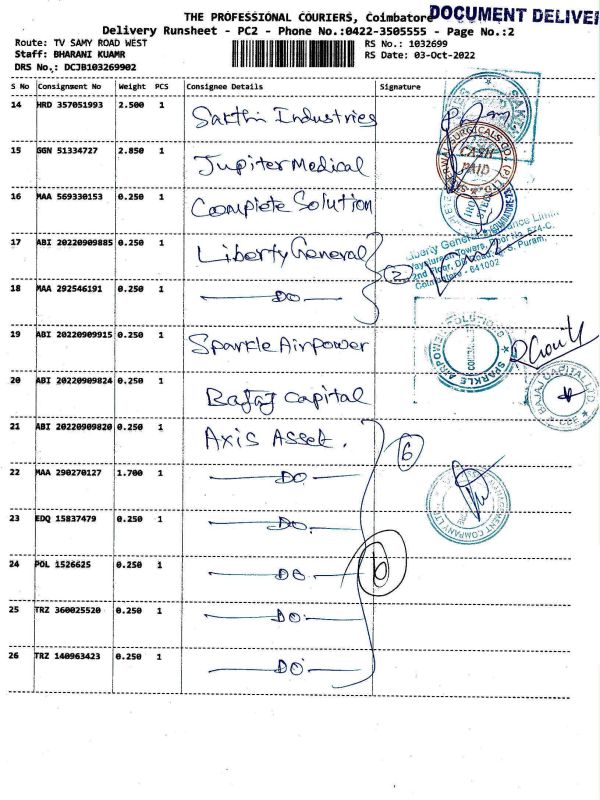 THE PROFESSIONAL COURIERS, Coimbatore
DOCUMENT DELIVE
Delivery Runsheet - PC2 - Phone No.:0422-3505555 - Page No.:2
Route: TV SAMY ROAD WEST
RS No.: 1032699
Staff: BHARANI KUAMR
RS Date: 03-Oct-2022
DRS No.: DCJB103269902
S No Consignment No Weight PCS Consignee Details Signature
14 HRD 357051993 2.500 1 Sakthi Industries
15 GGN 51334727 2.850 1 Jupiter Medical
SURGICALS CO. (P) LTD
CASH
PAID
16 MAA 569330153 0.250 1 Coomplete Solution
17 ABI 20220909885 0.250 1 Liberty General
2
Liberty General Insurance Limi
2nd Floor,
Coimbatore - 641002
18 MAA 292546191 0.250 1 DO
19 ABI 20220909915 0.250 1 Sparkle Airpower
SPARKLE AIRPOWER SOLUTIONS
20 ABI 20220909824 0.250 1 Bajaj Capital
BAJAJ CAPITAL LTD
CBE
21 ABI 20220909820 0.250 1 Axis Asset.
6
22 MAA 290270127 1.700 1 DO
MANAGEMENT COMPANY LTD
23 EDQ 15837479 0.250 1 DO.
24 POL 1526625 0.250 1 DO
6
25 TRZ 360025520 0.250 1 DO
26 TRZ 140963423 0.250 1 DO